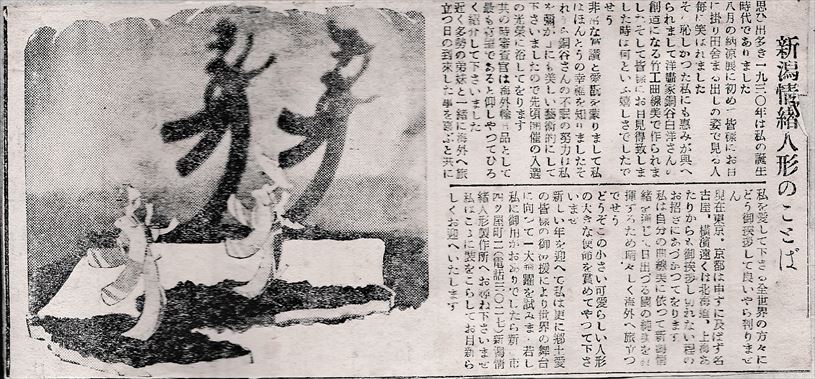 新潟情緒人形のことば
思ひ出多き一九三〇年は私の誕生
時代でありました
八月の納涼展に初めて皆樣にお目
に掛り田舎まる出しの姿で見る人
毎に笑はれました
その恥しかつた私にも惠みが與へ
られまして洋畵家銅谷白洋さんの
創造になる竹工曲線美で作られま
した そして皆樣にお目見得致しま
した時は何といふ嬉しさでしたで
せう
非常な賞讃と愛翫を蒙りまして私
はほんとうの幸福を知りましたそ
れから銅谷さんの不眠の努力は私
を彌が上にも美しい藝術的にして
下さいましたので先頃開催の入選
の光榮に浴してをります
其の時審査官は海外輸出品として
最も有望であると仰しやつてひろ
く紹介して下さいました
近く多勢の姉妹と一緒に海外へ旅
立つ日の到來した事を喜ぶと共に
私を愛して下さる全世界の方々に
どう御挨拶して良いやら判りませ
ん
現在東京、京都は申すに及ばず名
古屋、横濱遠くは北海道、上海あ
たりからも御挨拶し切れない程の
お招きにあづかつてをります
私は自分の曲線美に依つて新潟情
緒を通じて日出づる國の純美を發
揮するため晴々しく海外へ旅立つ
でせう
どうぞこの小さい可愛らしい人形
の大きな使命を賞めてやつて下さ
いませ
新しい年を迎へて私は更に郷土愛
の皆樣の御後援により世界の舞台
に向つて一大飛躍を試みます 若し
私に御用がおありでしたら新潟市
四ツ屋町二(電話三〇二七)新潟情
緒人形製作所へお尋ね下さいませ
私はこゝに装をこらしてお目新ら
しくお迎へいたします